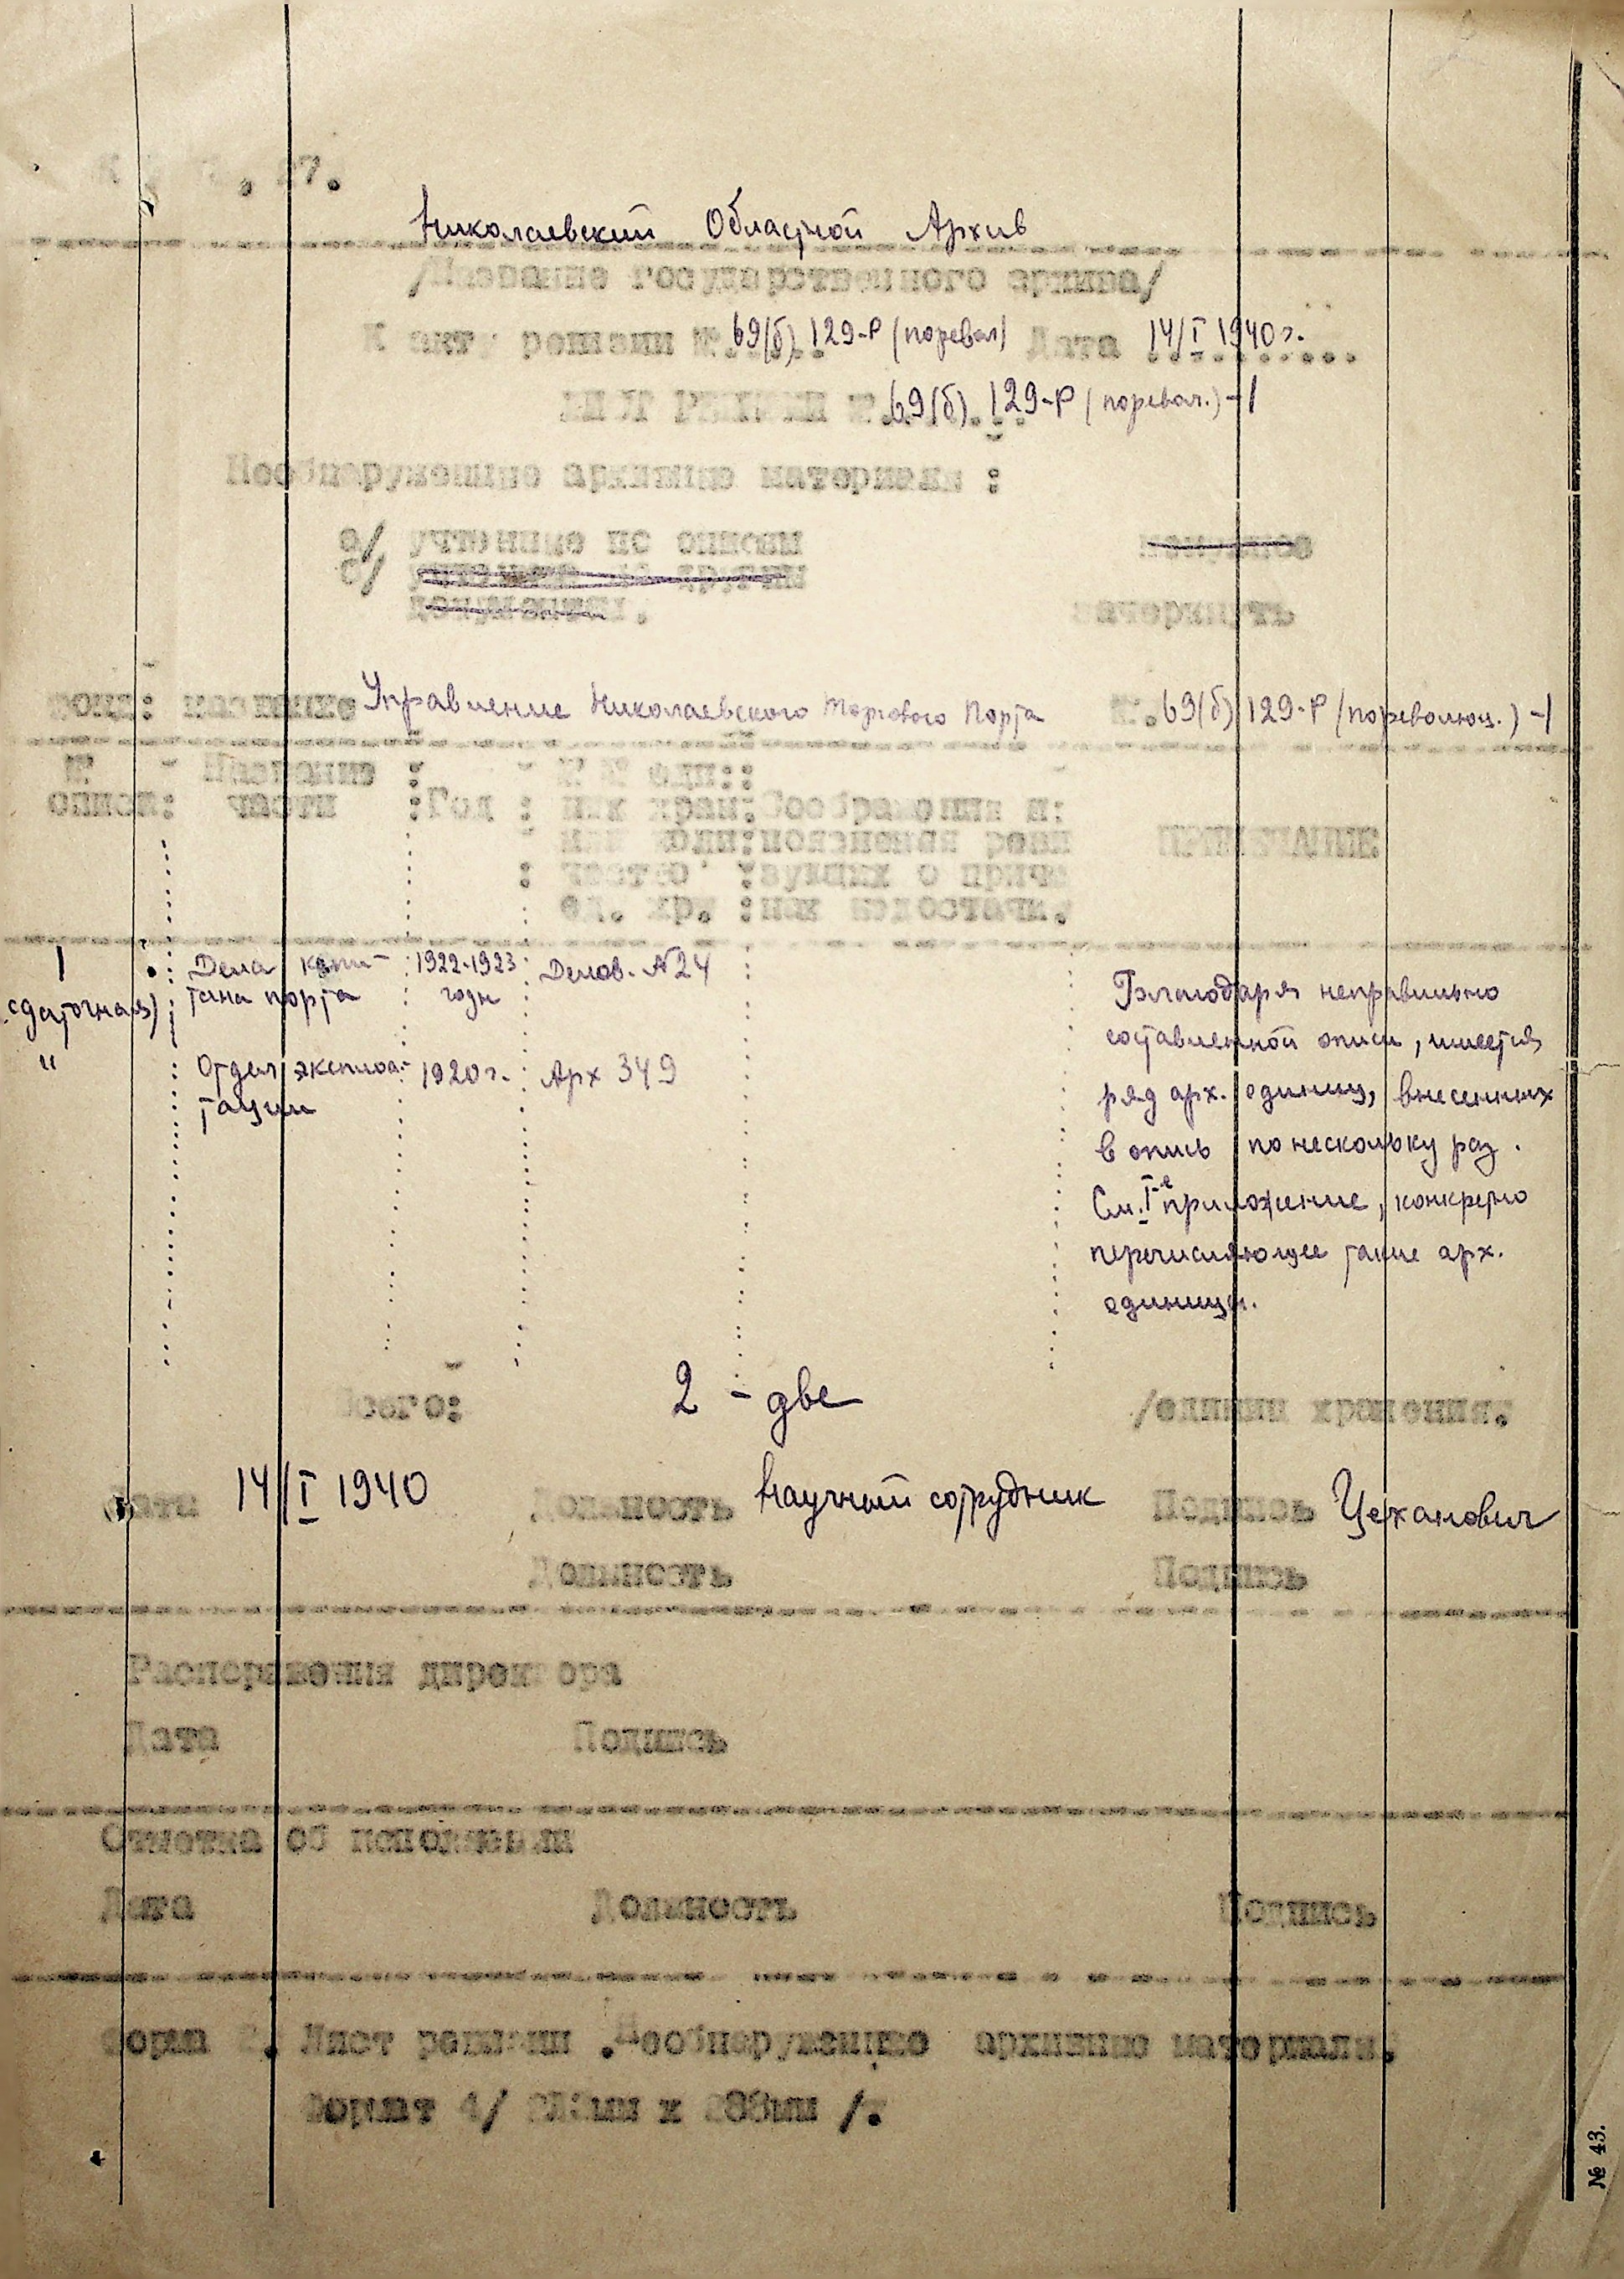 27.
Николаевский Областной Архив
/Название государственного архива/
К акту ревизии №. 69(б) 129-Р (поревол) Дата 14/I 1940 г.
ЛИСТ РЕВИЗИИ №. 69(б) 129-Р (поревол.) -1
Необнаружение архивные материалы :
а/ учтенные по описям
б/ учтенные по другим
документам.
ненужное
зачеркнуть
фонд: название Управление Николаевского Торгового Порта №. 69(б) 129-Р (пореволюц.) -1
№ описи: Название части : Год : №№ еди:
ниц хран: Соображения и:
или коли: пояснения реви
чество : зующих о причи
ед. хр. : нах недостачи.
ПРИМЕЧАНИЕ
1 (сдаточная) Дела капи- 1922-1923 Делов. №24
тана порта годы
" Отдел эксплоа- 1920 г. Арх 349
тации
Благодаря неправильно
составленной описи, имеется
ряд арх. единиц, внесенных
в опись по нескольку раз.
См. I-е приложение, конкретно
перечисляющее такие арх.
единицы.
Всего: 2 - две /единиц хранения.
Дата 14/I 1940 Должность Научный сотрудник Подпись Цеханович
Должность Подпись
Распоряжения директора
Дата Подпись
Отметка об исполнении
Дата Должность Подпись
Форма 2. Лист ревизии .Необнаружение архивные материалы.
Формат 4/ мм х мм /.
№ 43.